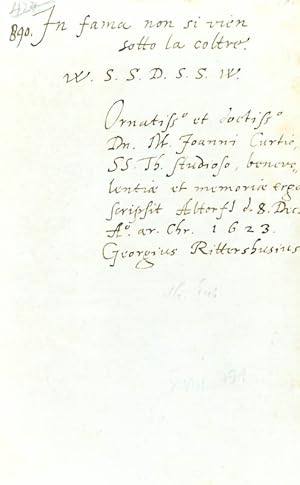 420
890. In fama non si vien
sotto la coltre.
W. S. S. D. S. S. W.
Ornatiss.o et doctiss.o
Dn. M. Joanni Curtio,
SS. Th. studioso, benevo,
lentiæ et memoriæ ergo
scripsit AltorfI d. 8. Dec.
A.o ær. Chr. 1623.
Georgius Rittershusius